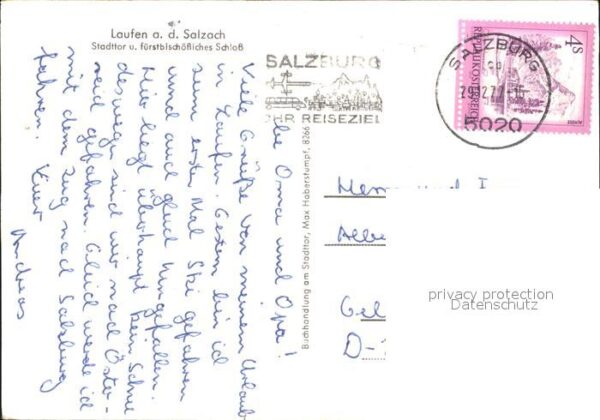 Laufen a. d. Salzach
Stadttor u. fürstbischöfliches Schloß
Liebe Oma und Opa!
Viele Grüße von meinem Urlaub
in Laufen. Gestern bin ich
zum ersten Mal Ski gefahren
und auch gleich hingefallen.
Hier liegt überhaupt kein Schnee
deswegen sind wir nach Öster-
reich gefahren. Gleich werde ich
mit dem Zug nach Salzburg
fahren. Euer
Andreas
Buchhandlung am Stadttor, Max Haberstumpf, 8266
SALZBURG
IHR REISEZIEL
SALZBURG
5020
4S
REPUBLIK ÖSTERREICH
Herrn und
Albe
Gel
D-
privacy protection
Datenschutz